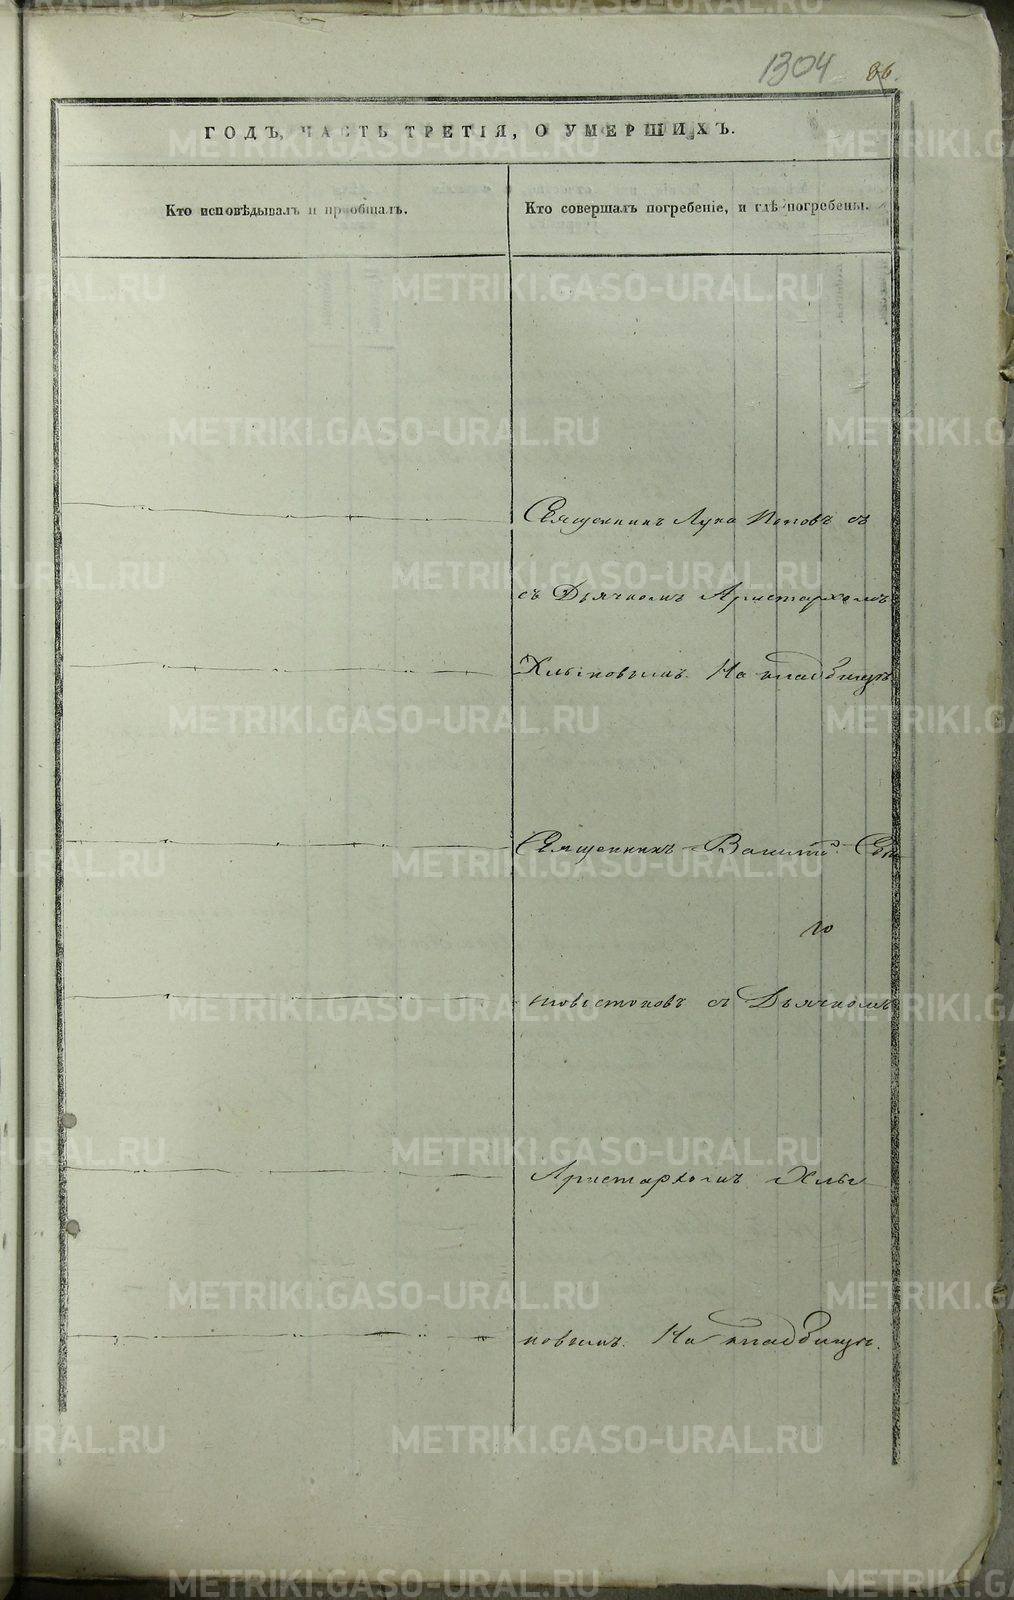 1304 86.
ГОДЪ, ЧАСТЬ ТРЕТІЯ, О УМЕРШИХЪ.
Кто исповѣдывалъ и пріобщалъ.
Кто совершалъ погребеніе, и гдѣ погребены.
Священникъ Лука Поповъ съ
съ Дьячкомъ Аристархомъ
Хлыновымъ. На кладбищѣ
Священникъ
съ Дьячкомъ
Аристархомъ Хлы
новымъ. На кладбищѣ.
METRIKI.GASO-URAL.RU